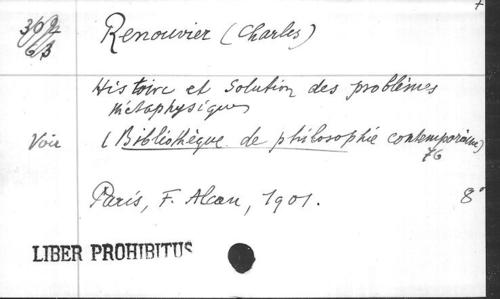 Renouvier (Charles)
Histoire et Solution des problèmes
métaphysiques
Voir (Bibliothèque de philosophie contemporaine)
76
Paris, F. Alcan, 1901. 8°
LIBER PROHIBITUS